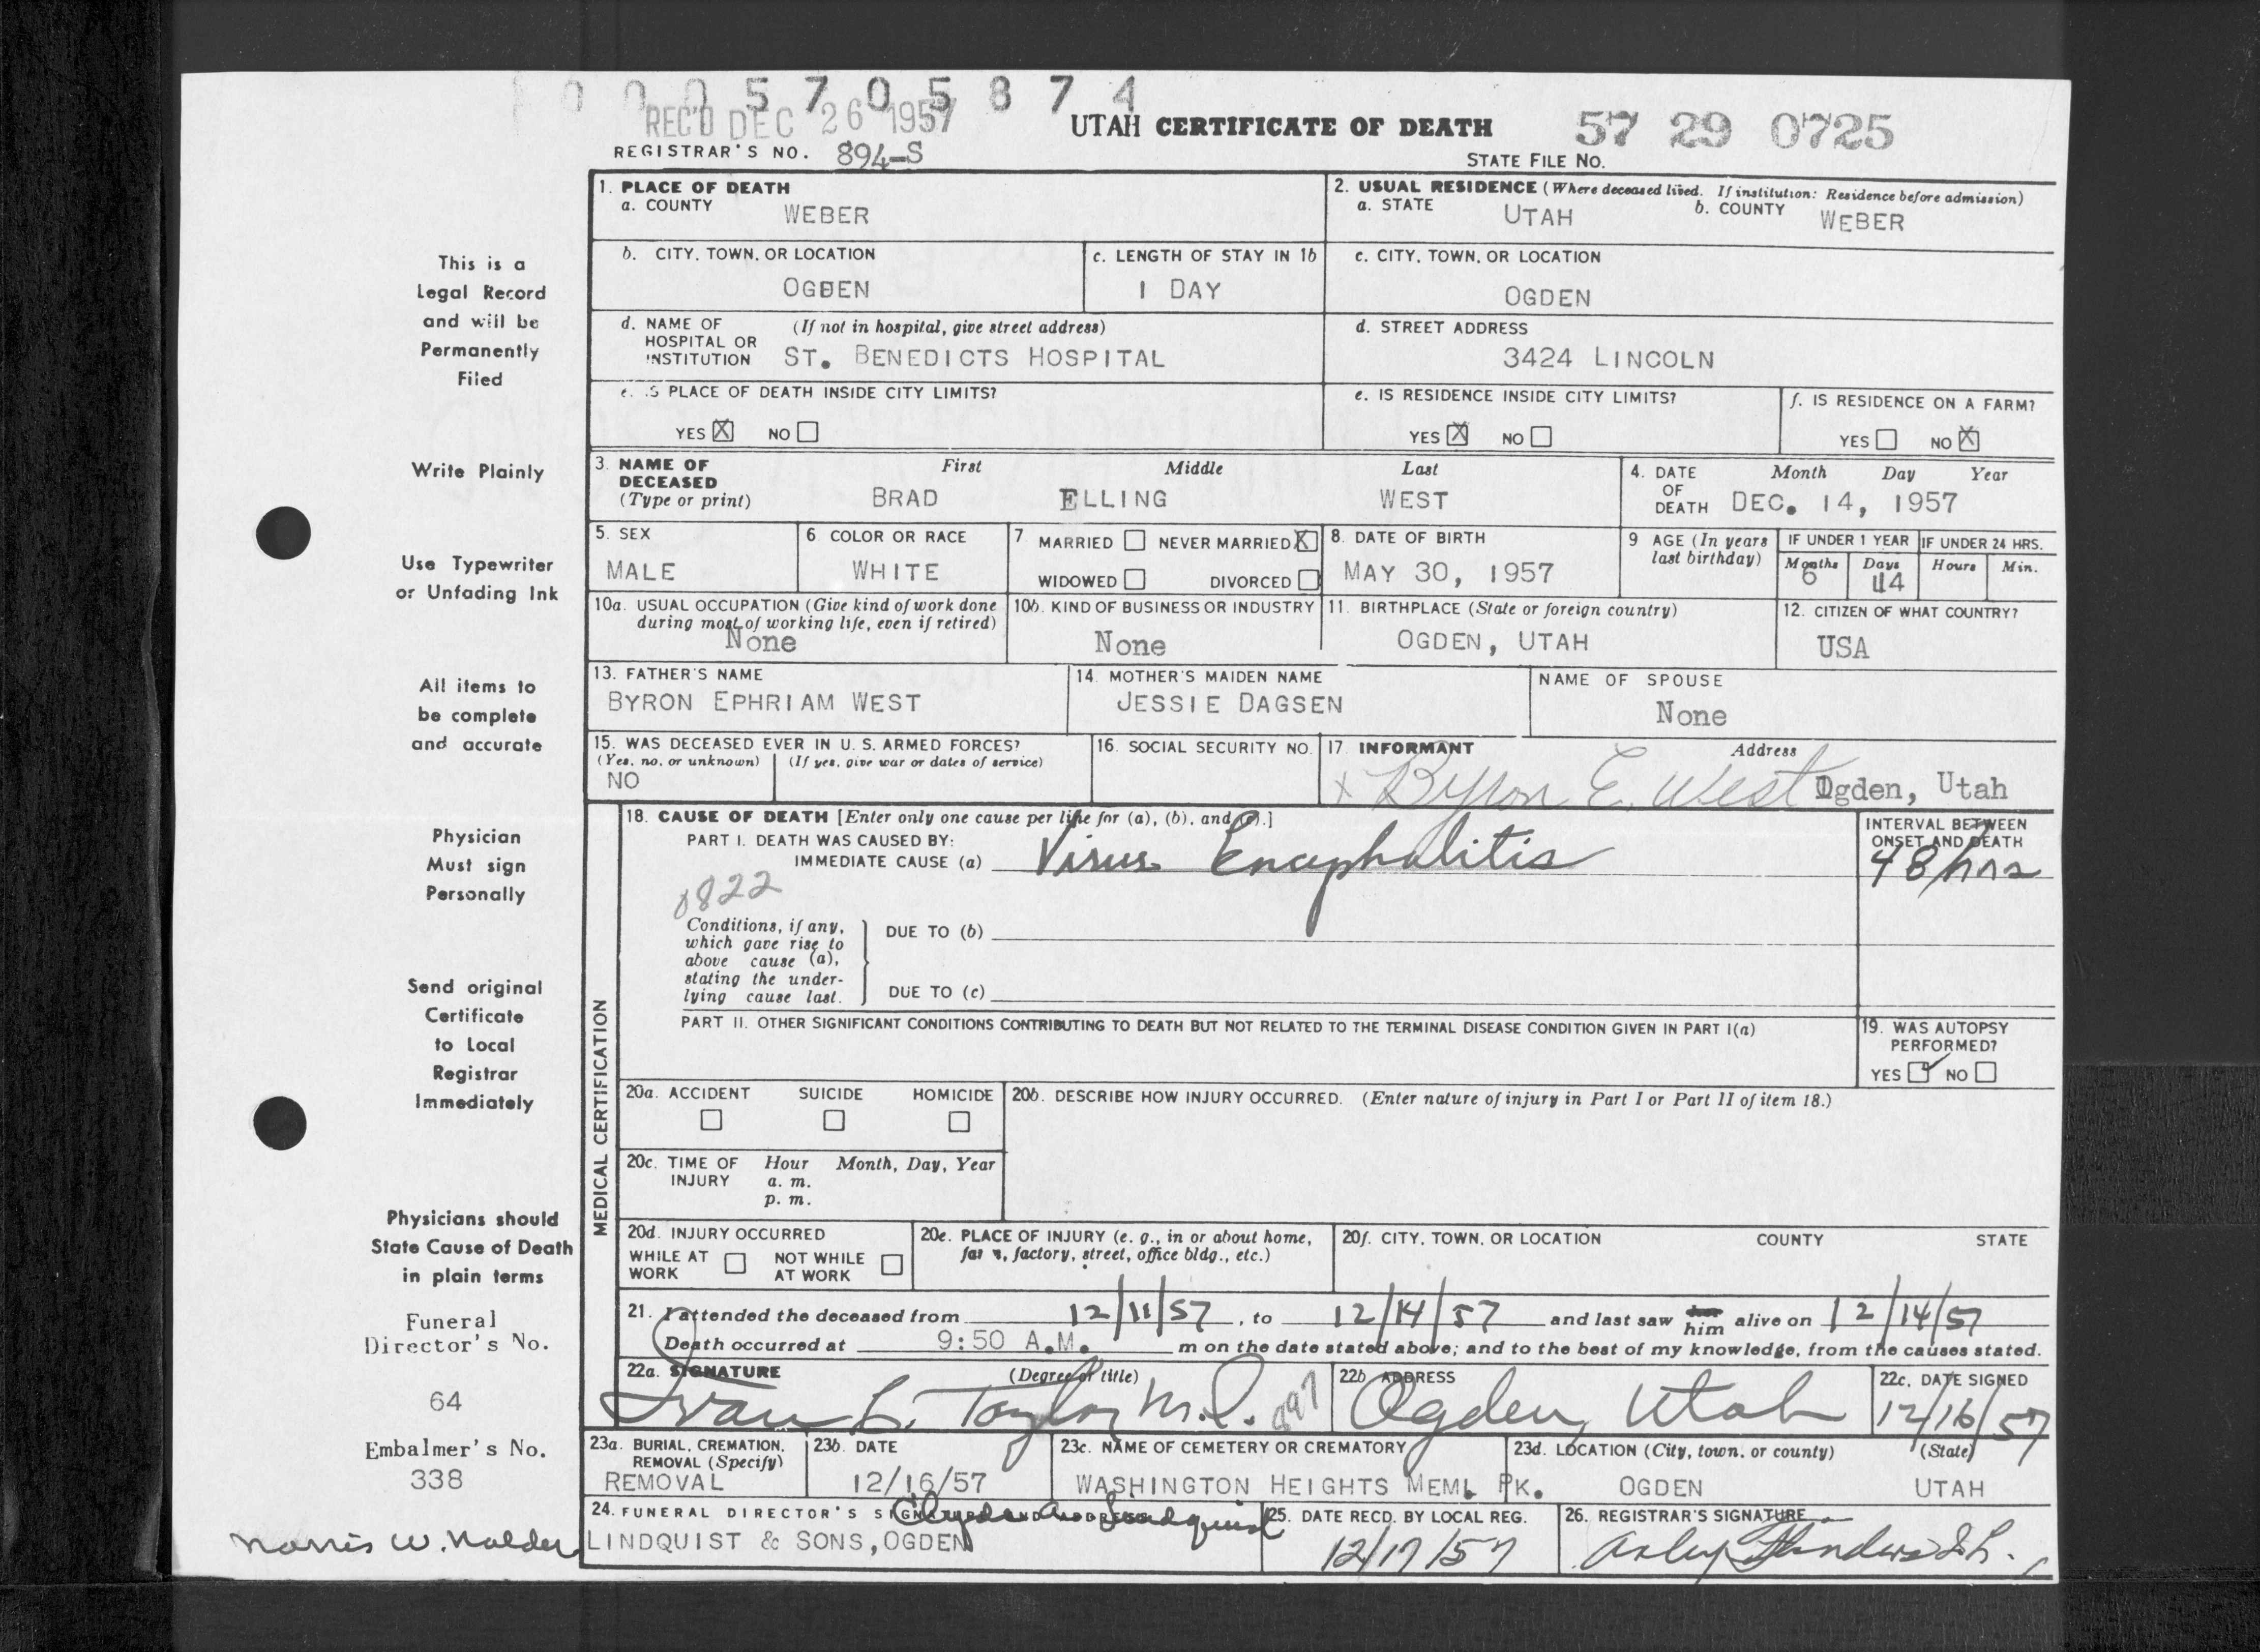 0 0 0 5 7 0 5 8 7 4
REC'D DEC 26 1957
UTAH CERTIFICATE OF DEATH
57 29 0725
REGISTRAR'S NO. 894-S
STATE FILE NO.
1. PLACE OF DEATH
a. COUNTY WEBER
2. USUAL RESIDENCE (Where deceased lived. If institution: Residence before admission)
a. STATE UTAH b. COUNTY WEBER
b. CITY, TOWN, OR LOCATION
OGDEN
c. LENGTH OF STAY IN 1b
1 DAY
c. CITY, TOWN, OR LOCATION
OGDEN
d. NAME OF HOSPITAL OR INSTITUTION (If not in hospital, give street address)
ST. BENEDICTS HOSPITAL
d. STREET ADDRESS
3424 LINCOLN
e. IS PLACE OF DEATH INSIDE CITY LIMITS?
YES X NO
e. IS RESIDENCE INSIDE CITY LIMITS?
YES X NO
f. IS RESIDENCE ON A FARM?
YES NO X
3. NAME OF DECEASED (Type or print)
First Middle Last
BRAD ELLING WEST
4. DATE OF DEATH Month Day Year
DEC. 14, 1957
5. SEX
MALE
6 COLOR OR RACE
WHITE
7 MARRIED NEVER MARRIED X
WIDOWED DIVORCED
8. DATE OF BIRTH
MAY 30, 1957
9 AGE (In years last birthday)
IF UNDER 1 YEAR
Months Days
6 14
IF UNDER 24 HRS.
Hours Min.
10a. USUAL OCCUPATION (Give kind of work done during most of working life, even if retired)
None
10b. KIND OF BUSINESS OR INDUSTRY
None
11. BIRTHPLACE (State or foreign country)
OGDEN, UTAH
12. CITIZEN OF WHAT COUNTRY?
USA
13. FATHER'S NAME
BYRON EPHRIAM WEST
14. MOTHER'S MAIDEN NAME
JESSIE DAGSEN
NAME OF SPOUSE
None
15. WAS DECEASED EVER IN U. S. ARMED FORCES?
(Yes, no, or unknown) (If yes, give war or dates of service)
NO
16. SOCIAL SECURITY NO.
17. INFORMANT Address
x Byron E. West Ogden, Utah
MEDICAL CERTIFICATION
18. CAUSE OF DEATH [Enter only one cause per line for (a), (b), and (c).]
PART I. DEATH WAS CAUSED BY:
IMMEDIATE CAUSE (a) Virus Encephalitis
INTERVAL BETWEEN ONSET AND DEATH
48 hrs
0822
Conditions, if any, which gave rise to above cause (a), stating the underlying cause last.
DUE TO (b)
DUE TO (c)
PART II. OTHER SIGNIFICANT CONDITIONS CONTRIBUTING TO DEATH BUT NOT RELATED TO THE TERMINAL DISEASE CONDITION GIVEN IN PART I(a)
19. WAS AUTOPSY PERFORMED?
YES ✓ NO
20a. ACCIDENT SUICIDE HOMICIDE
20b. DESCRIBE HOW INJURY OCCURRED. (Enter nature of injury in Part I or Part II of item 18.)
20c. TIME OF INJURY Hour Month, Day, Year
a. m.
p. m.
20d. INJURY OCCURRED
WHILE AT WORK NOT WHILE AT WORK
20e. PLACE OF INJURY (e. g., in or about home, farm, factory, street, office bldg., etc.)
20f. CITY, TOWN, OR LOCATION COUNTY STATE
21. I attended the deceased from 12/11/57, to 12/14/57 and last saw her him alive on 12/14/57
Death occurred at 9:50 A.M. m on the date stated above; and to the best of my knowledge, from the causes stated.
22a. SIGNATURE (Degree or title)
Ivan L. Taylor M.D.
22b ADDRESS
Ogden, Utah
22c. DATE SIGNED
12/16/57
23a. BURIAL, CREMATION, REMOVAL (Specify)
REMOVAL
23b. DATE
12/16/57
23c. NAME OF CEMETERY OR CREMATORY
WASHINGTON HEIGHTS MEML PK.
23d. LOCATION (City, town, or county) (State)
OGDEN UTAH
24. FUNERAL DIRECTOR'S SIGNATURE AND ADDRESS
Lindquist
LINDQUIST & SONS, OGDEN
25. DATE RECD. BY LOCAL REG.
12/17/57
26. REGISTRAR'S SIGNATURE
This is a
Legal Record
and will be
Permanently
Filed
Write Plainly
Use Typewriter
or Unfading Ink
All items to
be complete
and accurate
Physician
Must sign
Personally
Send original
Certificate
to Local
Registrar
Immediately
Physicians should
State Cause of Death
in plain terms
Funeral
Director's No.
64
Embalmer's No.
338
Norris W. Nalder